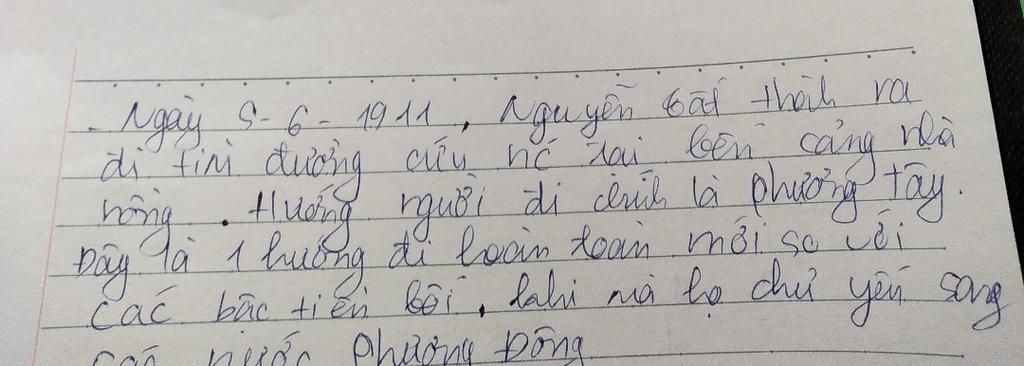 - Ngày 5-6-1911, Nguyễn tất thành ra
đi tìm đường cứu nc tại bến cảng nhà
rồng. Hướng người đi chính là phương tây.
Đây là 1 hướng đi hoàn toàn mới so với
các bậc tiền bối, khi mà họ chủ yếu sang
các nước phương Đông